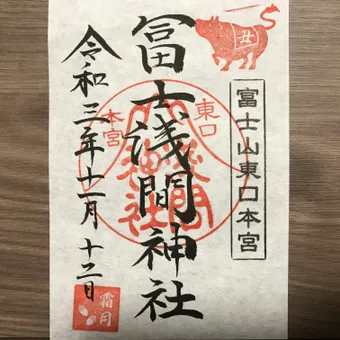 丑
富士山東口本宮
冨士浅間神社
東口
本宮
令和三年十一月十二日
霜月